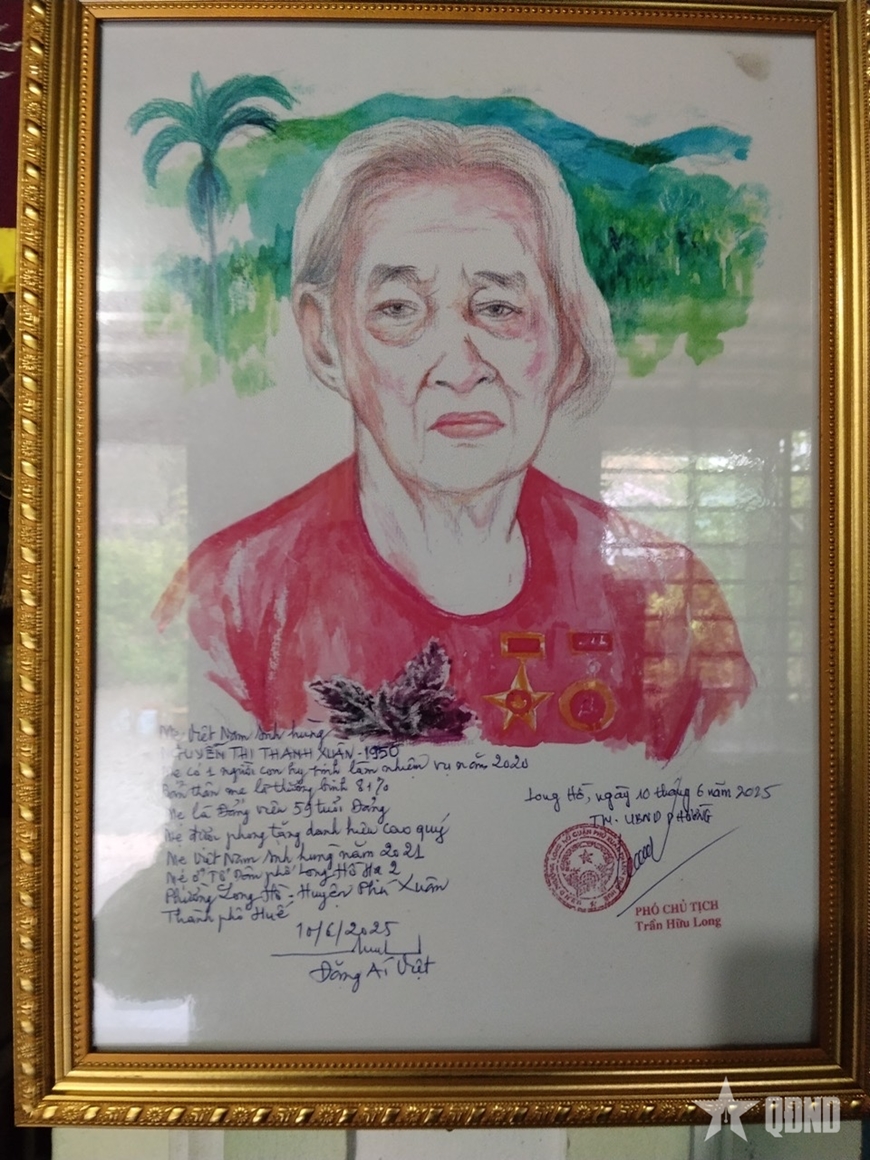 Mẹ Việt Nam Anh hùng
NGUYỄN THỊ THANH XUÂN - 1950
Mẹ có 1 người con hy sinh làm nhiệm vụ năm 2020
Bản thân mẹ là thương binh 81%
Mẹ là Đảng viên 55 tuổi Đảng
Mẹ được phong tặng danh hiệu cao quý
Mẹ Việt Nam Anh hùng năm 2021
Mẹ ở Tổ Dân phố Long Hồ Hạ 2
Phường Long Hồ - Huyện Phú Xuân
Thành phố Huế
10/6/2025
Đặng Ái Việt
Long Hồ, ngày 10 tháng 6 năm 2025
TM. UBND PHƯỜNG
PHÓ CHỦ TỊCH
Trần Hữu Long
QĐND